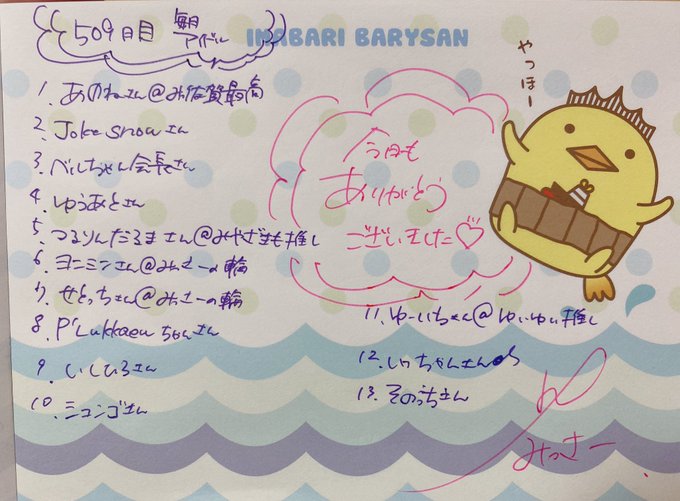 509日目
毎日
アイドル
IMABARI BARYSAN
やっほー
1. あのねさん@み佐賀最高
2. Joke snowさん
3. ベルちゃん会長さん
4. ゆうあとさん
5. つるりんだるまさん@みやざきも推し
6. ヨニミンさん@みっさーの輪
7. せとっちさん@みっさーの輪
8. P'Lukkaewちゃんさん
9. いしひろさん
10. ミュンゴさん
今日も
ありがとう
ございました♡
11. ゆーいちさん@ゆいゆい推し
12. しゃちゃんさん
13. そのっちさん
みっさー